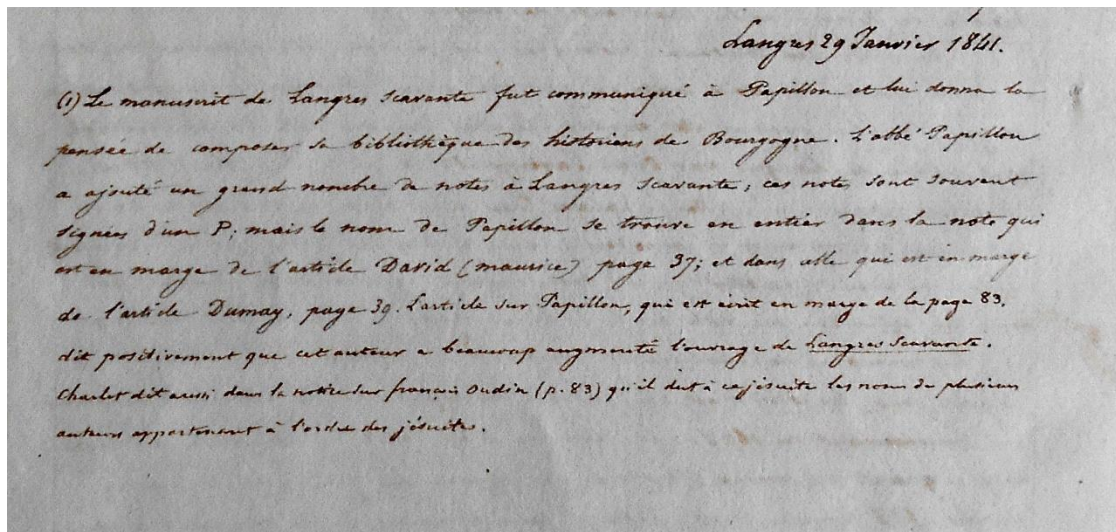 Langres 29 Janvier 1841.
(1) Le manuscrit de Langres Scavante fut communiqué à Papillon et lui donna la
pensée de composer sa bibliothèque des historiens de Bourgogne. L'abbé Papillon
a ajouté un grand nombre de notes à Langres Scavante; ces notes sont souvent
signées d'un P; mais le nom de Papillon se trouve en entier dans la note qui
est en marge de l'article David (maurice) page 37; et dans celle qui est en marge
de l'article Dumay, page 39. L'article sur Papillon, qui est écrit en marge de la page 83,
dit positivement que cet auteur a beaucoup augmenté l'ouvrage de Langres Scavante.
Charlet dit aussi dans la notice sur françois Oudin (p. 83) qu'il dut à ce jésuite les noms de plusieurs
auteurs appartenant à l'ordre des jésuites.